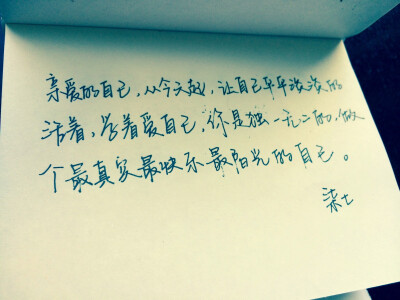 亲爱的自己，从今天起，让自己平平淡淡的
活着，学着爱自己，你是独一无二的，做
个最真实最快乐最阳光的自己。